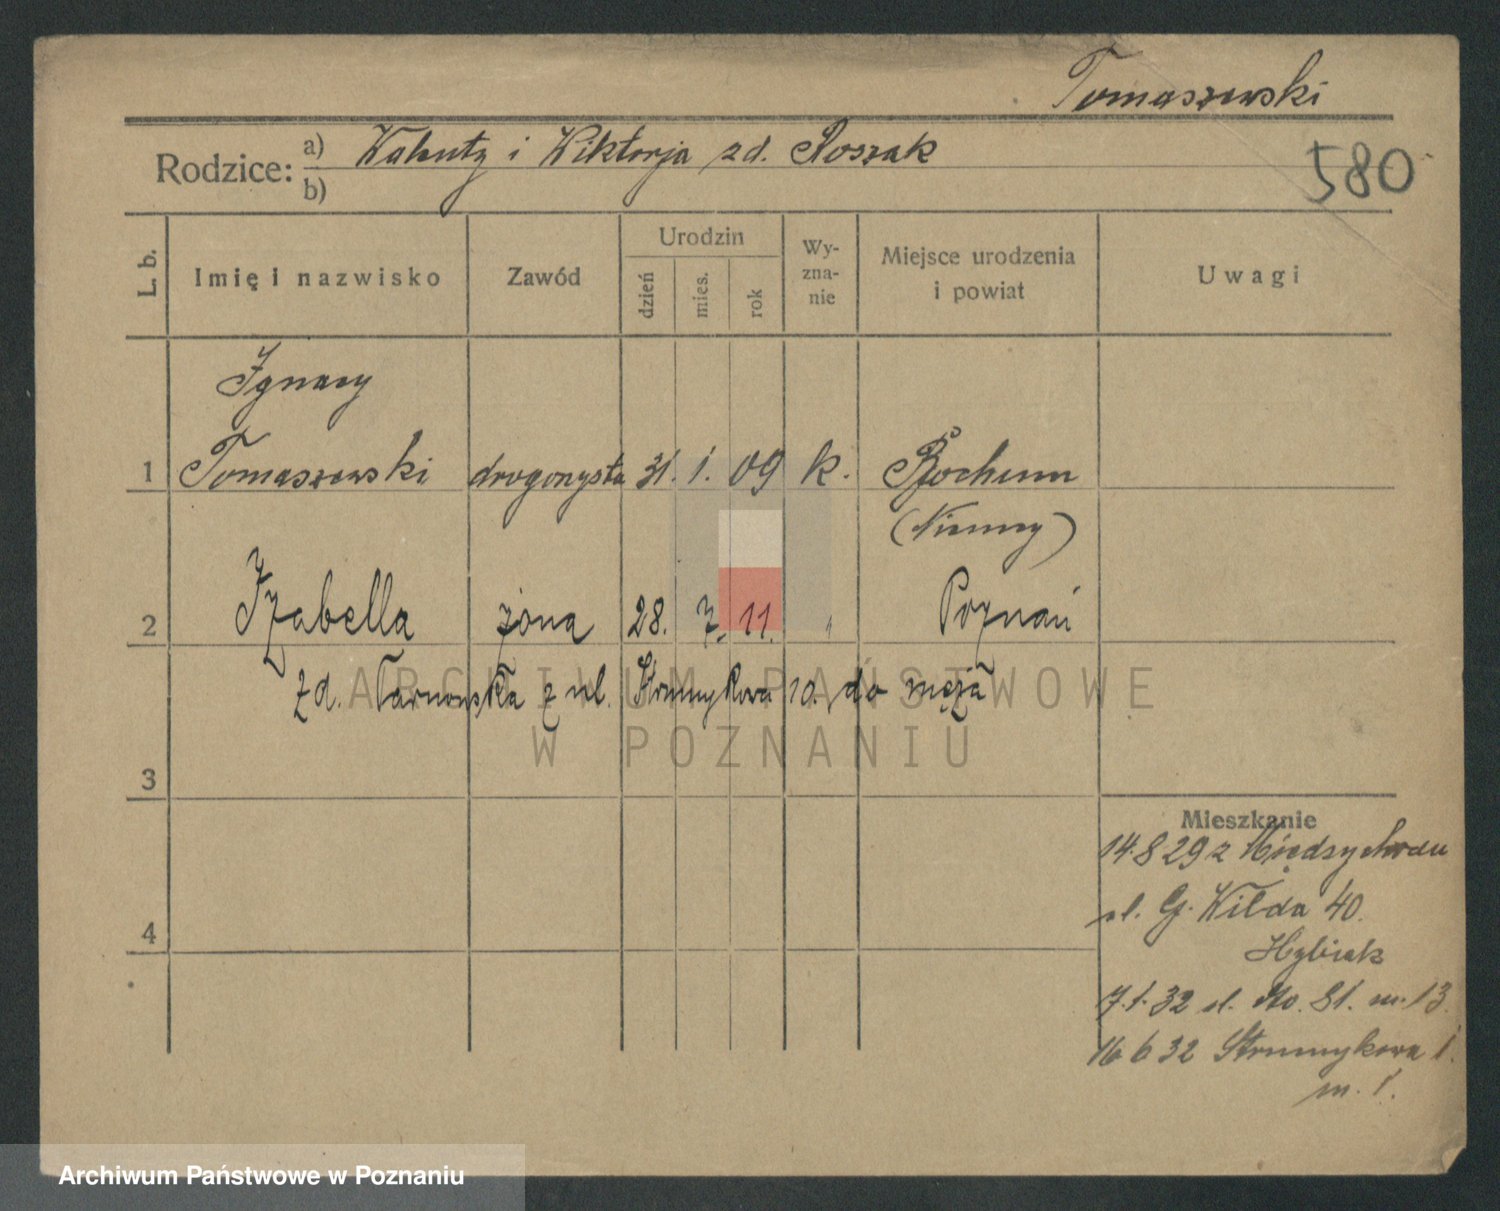 Tomaszewski
Rodzice: a) Walenty i Wiktorja zd. Roszak
b)
580
L. b.
Imię i nazwisko
Zawód
Urodzin
dzień
mies.
rok
Wy-
zna-
nie
Miejsce urodzenia
i powiat
Uwagi
Ignacy
1 Tomaszewski drogonysta 31. 1. 09 k. Bochum
(Niemcy)
2 Izabella żona 28. 7. 11. " Poznań
zd. Tarnowska z ul. Strumykowa 10. do męża
ARCHIWUM PAŃSTWOWE
W POZNANIU
3
Mieszkanie
14.8 29 z Międzychodu
ul. G. Wilda 40.
4
Hybiak
7.1.32 81. m. 13
16 6 32 Strumykowa 1.
m. 1.
Archiwum Państwowe w Poznaniu